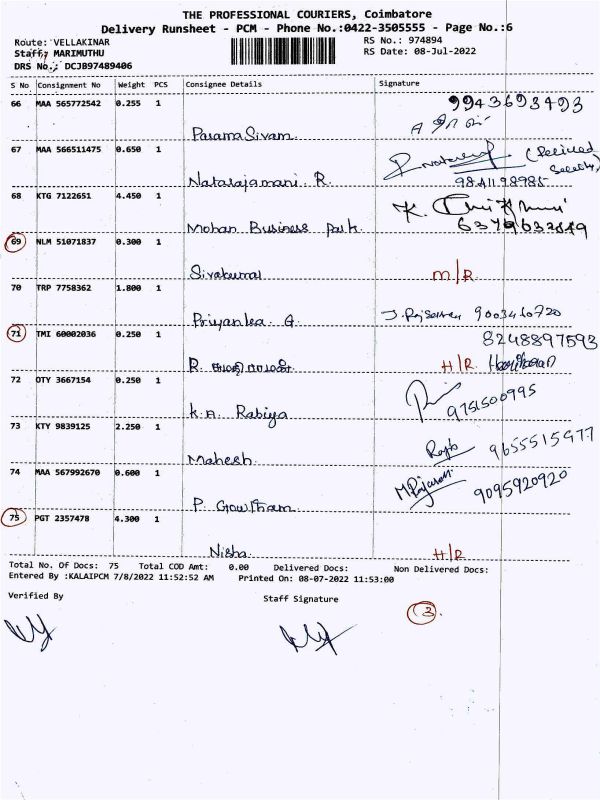 THE PROFESSIONAL COURIERS, Coimbatore
Delivery Runsheet - PCM - Phone No.:0422-3505555 - Page No.:6
Route: VELLAKINAR RS No.: 974894
Staff: MARIMUTHU RS Date: 08-Jul-2022
DRS No.: DCJB97489406
S No Consignment No Weight PCS Consignee Details Signature
66 MAA 565772542 0.255 1 9943693493
Parama Sivam.
67 MAA 566511475 0.650 1 (Received
Natarajamani. R. 9841198985
68 KTG 7122651 4.450 1 K.
Mohan Business Park. 6379633849
69 NLM 51071837 0.300 1
Sivakumar M/R.
70 TRP 7758362 1.800 1
Priyanka. G. 9003410720
71 TMI 60002036 0.250 1 8248897593
R. H/R. Hariharan
72 OTY 3667154 0.250 1
K.A. Rabiya 9751500995
73 KTY 9839125 2.250 1 9655515977
Mahesh.
74 MAA 567992670 0.600 1
P. Gowtham 9095920920
75 PGT 2357478 4.300 1
Nisha H/R
Total No. Of Docs: 75 Total COD Amt: 0.00 Delivered Docs: Non Delivered Docs:
Entered By :KALAIPCM 7/8/2022 11:52:52 AM Printed On: 08-07-2022 11:53:00
Verified By Staff Signature
3.